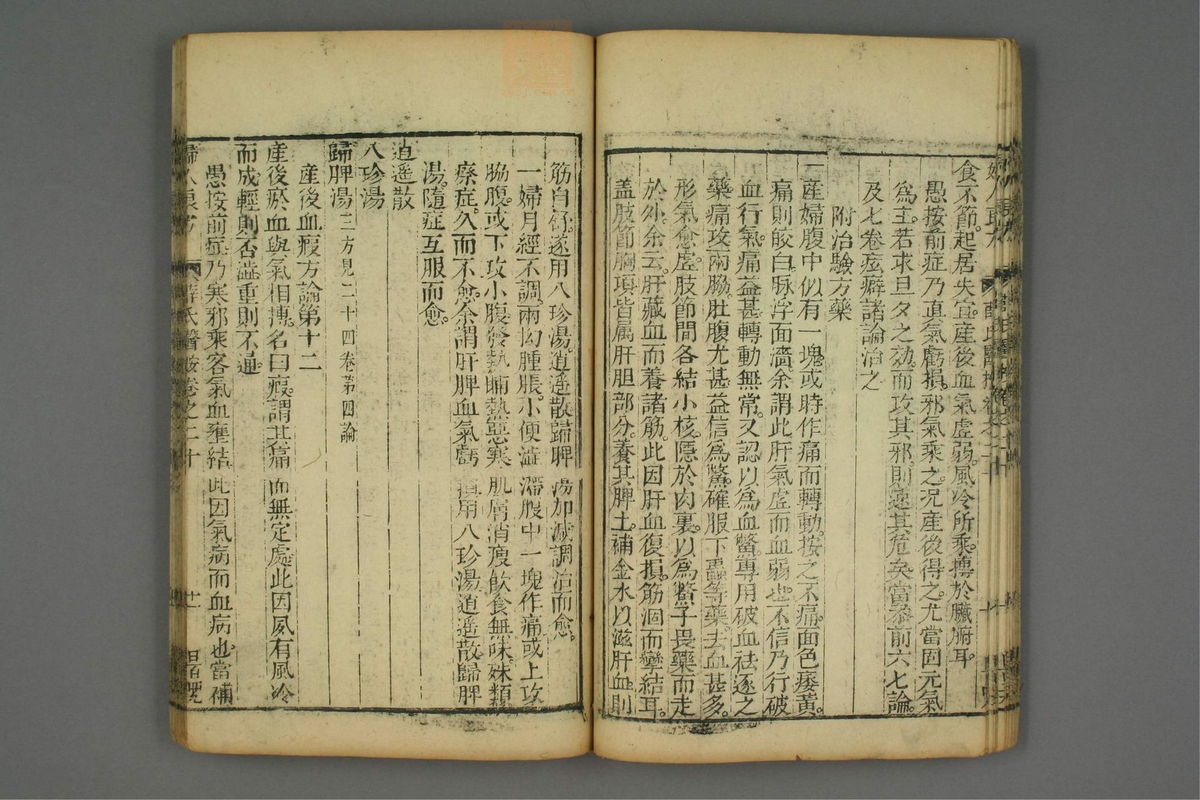 食不節。起居失宜。產後血氣虛弱。風冷所乘。搏於臟腑耳。
愚按前症乃眞氣虧損。邪氣乘之。况產後得之。尤當固元氣
爲主。若求旦夕之効。而攻其邪。則速其危矣。當參前六七論。
及七卷痃癖諸論治之
附治驗方藥
一產婦腹中似有一塊。或時作痛而轉動。按之不痛。面色痿黃。
痛則㿠白。脉浮面濇。余謂此肝氣虛而血弱也。不信乃行破
血行氣。痛益甚。轉動無常。又認以爲血鱉。專用破血祛逐之
藥。痛攻兩脇。肚腹尤甚。益信爲鱉。確服下蟲等藥。去血甚多。
形氣愈虛。肢節間各結小核。隱於肉裏。以爲鱉子畏藥而走
於外。余云。肝藏血而養諸筋。此因肝血復損。筋涸而攣結耳。
蓋肢節胸項皆属肝胆部分。養其脾土。補金水以滋肝血。則
筋自舒。遂用八珍湯。逍遥散歸脾湯加減調治而愈。
一婦月經不調。兩拗腫脹。小便澁滯。腹中一塊作痛。或上攻
脇腹。或下攻小腹。發熱晡熱。惡寒肌膚消瘦。飲食無味。殊類
瘵症。久而不愈。余謂肝脾血氣虧損。用八珍湯逍遥散歸脾
湯。隨症互服而愈。
逍遥散
八珍湯
歸脾湯三方見二十四卷第四論
產後血瘕方論第十二
產後瘀血與氣相搏。名曰瘕。謂其痛而無定處。此因夙有風冷
而成。輕則否澁。重則不通
愚按前症乃寒邪乘客。氣血壅結。此因氣病而血病也。當補